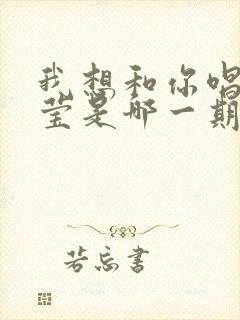 我想和你唱
莹是哪一期
若忘书